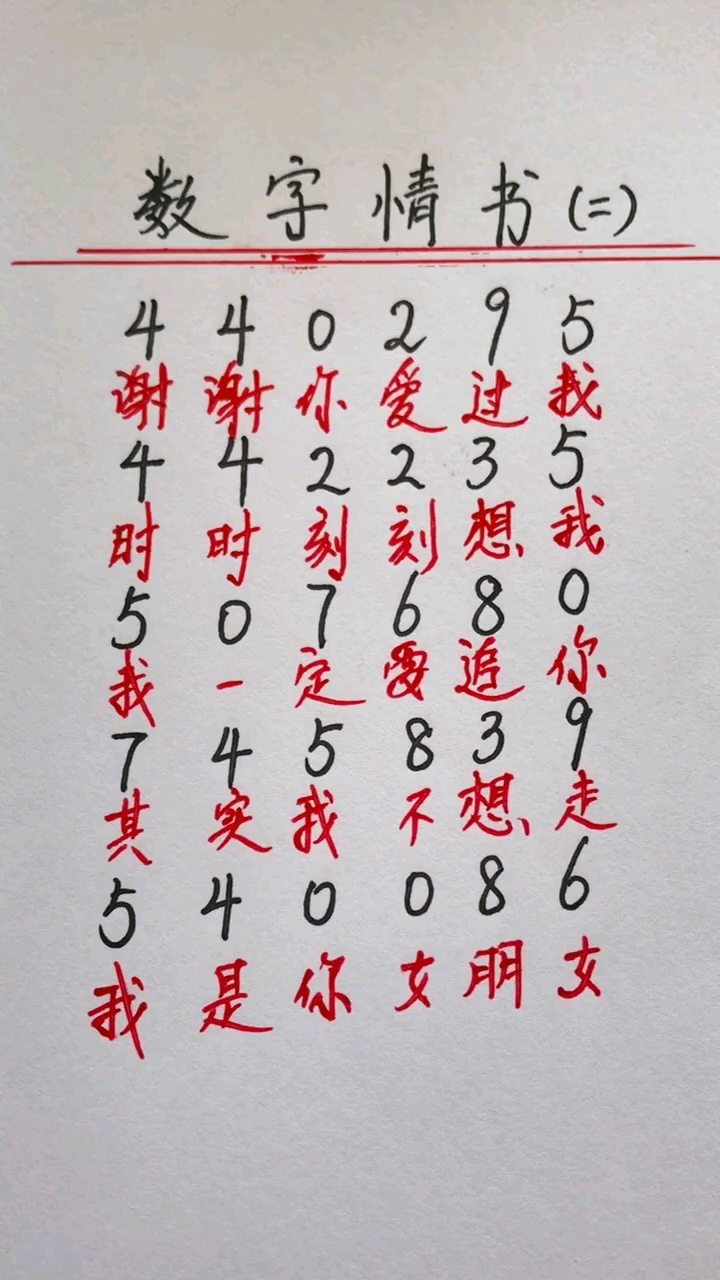 数字情书(二)
4 4 0 2 9 5
谢谢你爱过我
4 4 2 2 3 5
时时刻刻想我
5 0 7 6 8 0
我一定要追你
7 4 5 8 3 9
其实我不想走
5 4 0 0 8 6
我是你女朋女